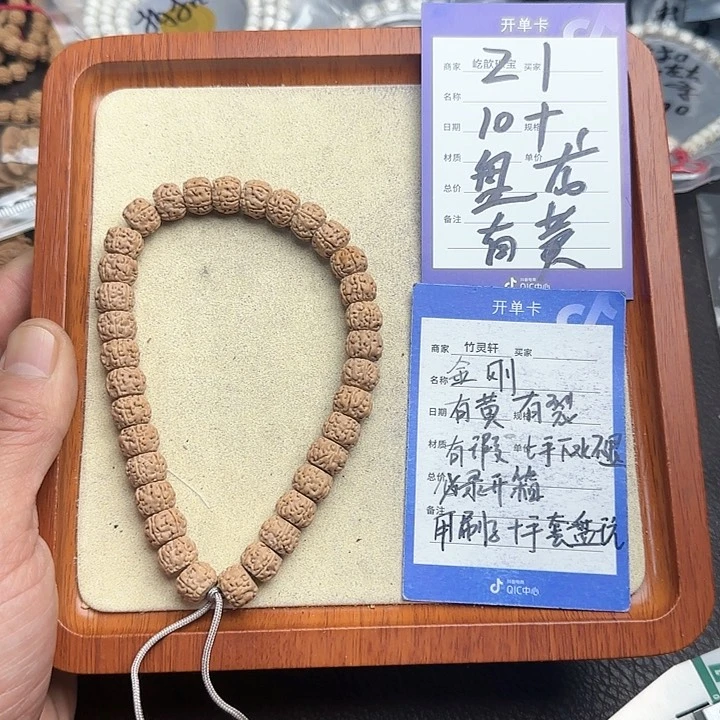 开单卡
商家 屹歆珠宝 买家
21
名称
日期 10十 规格
材质 单价
盘
总价
备注
有黄
抖音电商
QIC中心
开单卡
商家 竹灵轩 买家
名称 金刚
日期 有黄 规格 有裂
材质 有瑕 单价
总价 必录开箱
备注
用刷子 十手套盘玩
抖音电商
QIC中心